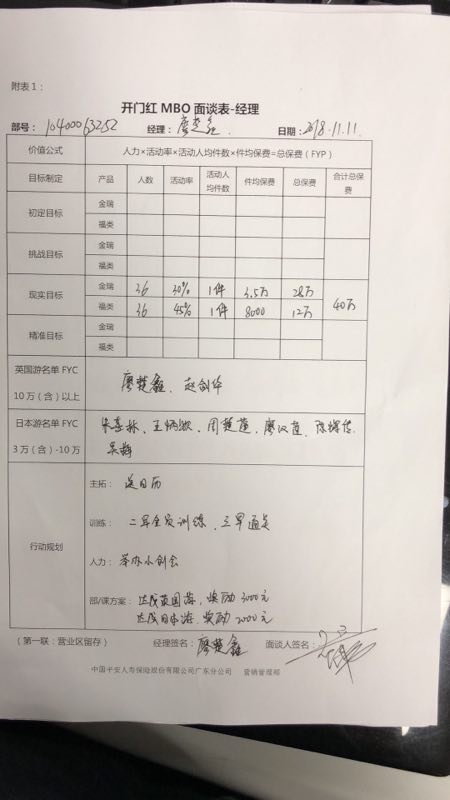 附表1：
开门红 MBO 面谈表-经理
部号：10400063252 经理：廖楚鑫 日期：2018.11.11.
价值公式 人力×活动率×活动人均件数×件均保费=总保费（FYP）
目标制定 产品 人数 活动率 活动人均件数 件均保费 总保费 合计总保费
初定目标 金瑞
福类
挑战目标 金瑞
福类
现实目标 金瑞 36 30% 1件 3.5万 28万 40万
福类 36 45% 1件 8000 12万
精准目标 金瑞
福类
英国游名单 FYC
10万（含）以上 廖楚鑫、赵剑华
日本游名单 FYC
3万（含）-10万 王炳 周楚莲、廖汉莲、陈
行动规划
主拓：送日历
训练：二早全员训练、三早通关
人力：举办小创会
部/课方案：达成英国游，奖励3000元
达成日本游，奖励2000元
（第一联：营业区留存） 经理签名：廖楚鑫 面谈人签名：
中国平安人寿保险股份有限公司广东分公司 营销管理部